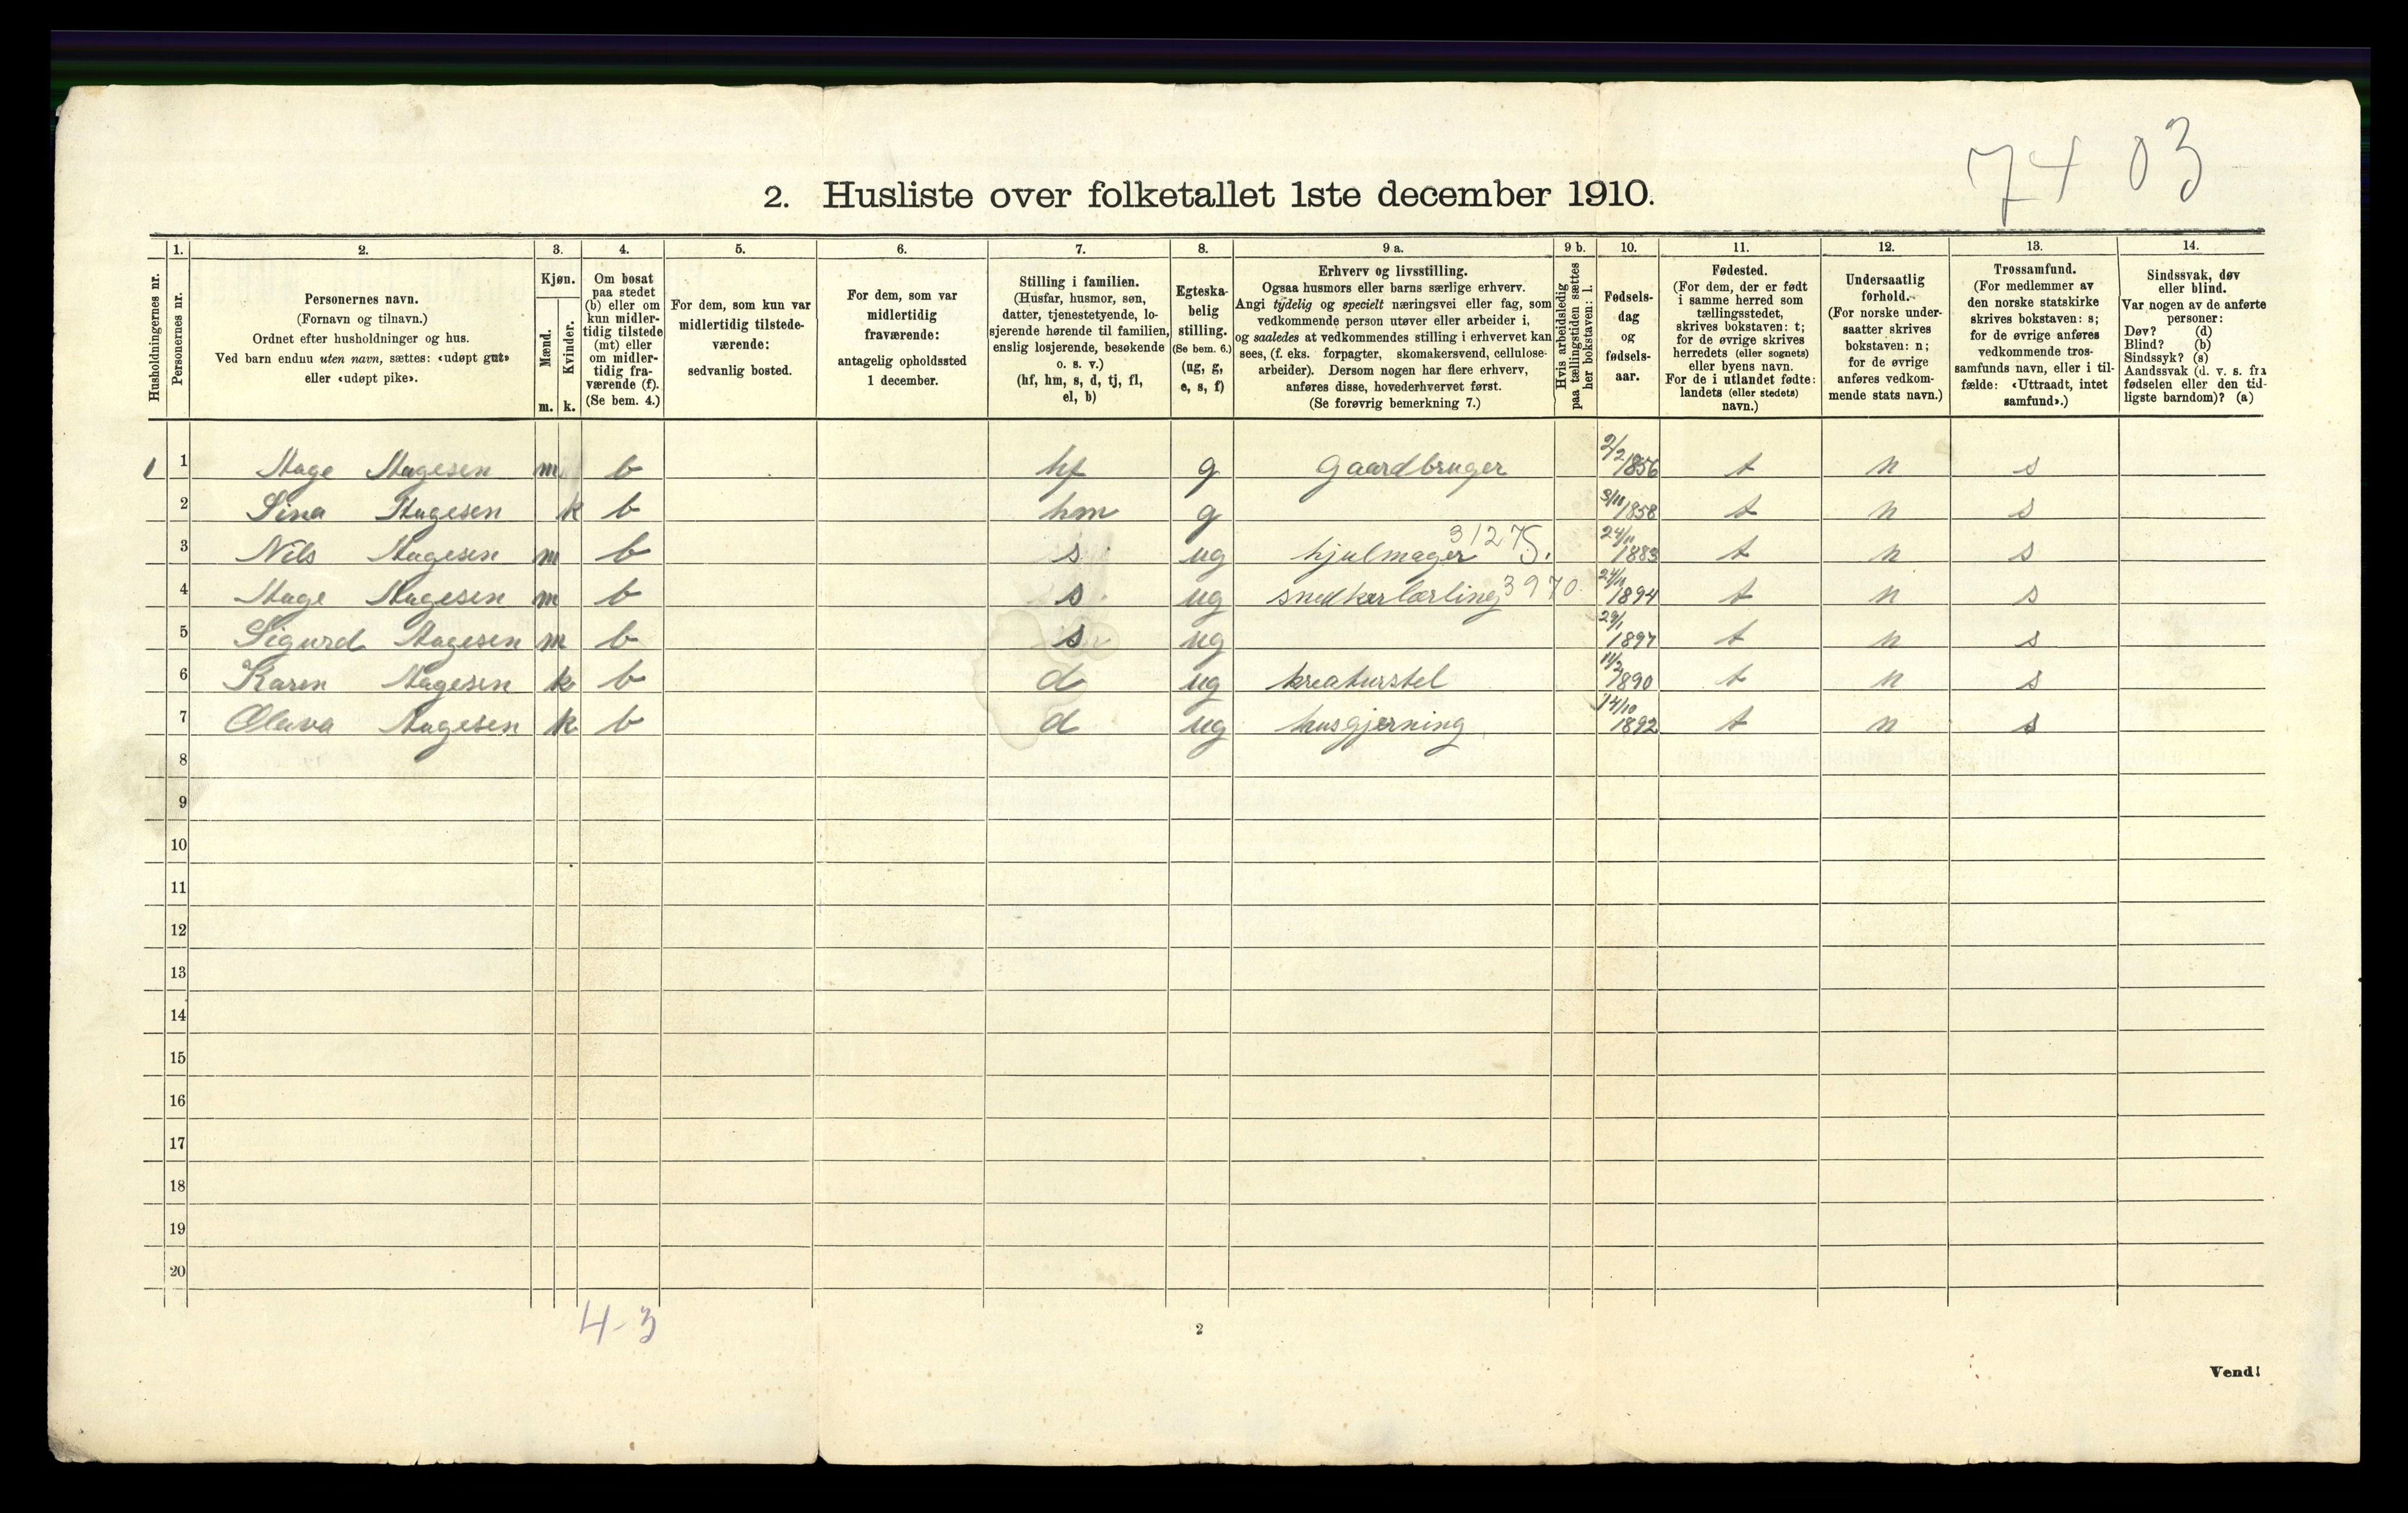 7403
2. Husliste over folketallet 1ste december 1910.
Husholdningernes nr.
1.
Personernes nr.
2.
Personernes navn.
(Fornavn og tilnavn.)
Ordnet efter husholdninger og hus.
Ved barn endnu uten navn, sættes: «udøpt gut»
eller «udøpt pike».
3.
Kjøn.
Mænd.
Kvinder.
m. k.
4.
Om bosat
paa stedet
(b) eller om
kun midler-
tidig tilstede
(mt) eller
om midler-
tidig fra-
værende (f).
(Se bem. 4.)
5.
For dem, som kun var
midlertidig tilstede-
værende:
sedvanlig bosted.
6.
For dem, som var
midlertidig
fraværende:
antagelig opholdssted
1 december.
7.
Stilling i familien.
(Husfar, husmor, søn,
datter, tjenestetyende, lo-
sjerende hørende til familien,
enslig losjerende, besøkende
o. s. v.)
(hf, hm, s, d, tj, fl,
el, b)
8.
Egteska-
belig
stilling.
(Se bem. 6.)
(ug, g,
e, s, f)
9 a.
Erhverv og livsstilling.
Ogsaa husmors eller barns særlige erhverv.
Angi tydelig og specielt næringsvei eller fag, som
vedkommende person utøver eller arbeider i,
og saaledes at vedkommendes stilling i erhvervet kan
sees, (f. eks. forpagter, skomakersvend, cellulose-
arbeider). Dersom nogen har flere erhverv,
anføres disse, hovederhvervet først.
(Se forøvrig bemerkning 7.)
9 b.
Hvis arbeidsledig
paa tællingstiden sættes
her bokstaven: l.
10.
Fødsels-
dag
og
fødsels-
aar.
11.
Fødested.
(For dem, der er født
i samme herred som
tællingsstedet,
skrives bokstaven: t;
for de øvrige skrives
herredets (eller sognets)
eller byens navn.
For de i utlandet fødte:
landets (eller stedets)
navn.)
12.
Undersaatlig
forhold.
(For norske under-
saatter skrives
bokstaven: n;
for de øvrige
anføres vedkom-
mende stats navn.)
13.
Trossamfund.
(For medlemmer av
den norske statskirke
skrives bokstaven: s;
for de øvrige anføres
vedkommende tros-
samfunds navn, eller i til-
fælde: «Uttraadt, intet
samfund».)
14.
Sindssvak, døv
eller blind.
Var nogen av de anførte
personer:
Døv? (d)
Blind? (b)
Sindssyk? (s)
Aandssvak (d. v. s. fra
fødselen eller den tid-
ligste barndom)? (a)
1 1 Aage Aagesen m b hf g Gaardbruger 2/2 1856 t n s
2 Sina Aagesen k b hm g 3/11 1858 t n s
3 Nils Aagesen m b s ug hjulmager 31275. 24/11 1883 t n s
4 Aage Aagesen m b s ug snedkerlærling 3970 24/11 1894 t n s
5 Sigurd Aagesen m b s ug 29/1 1897 t n s
6 Karen Aagesen k b d ug kreaturstel 1890 t n s
7 Olava Aagesen k b d ug husgjerning 14/10 1892 t n s
8
9
10
11
12
13
14
15
16
17
18
19
20
4-3
2
Vend!